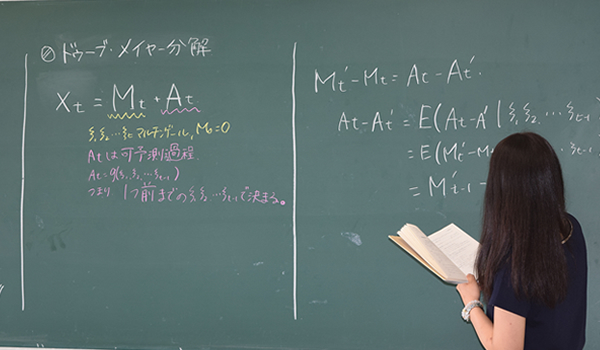 ◎ ドゥーブ・メイヤー分解
Xt = Mt + At
ξ1, ξ2, … ξt マルチンゲール, M0=0
Atは可予測過程.
At=g(ξ1, ξ2, … ξt-1)
つまり 1つ前までの ξ1, ξ2, … ξt-1 で決まる。
Mt′-Mt = At - At′.
At-At′ = E(At-A′ | ξ1, ξ2, … ξt-1
= E(Mt′-M
= M′t-1 -